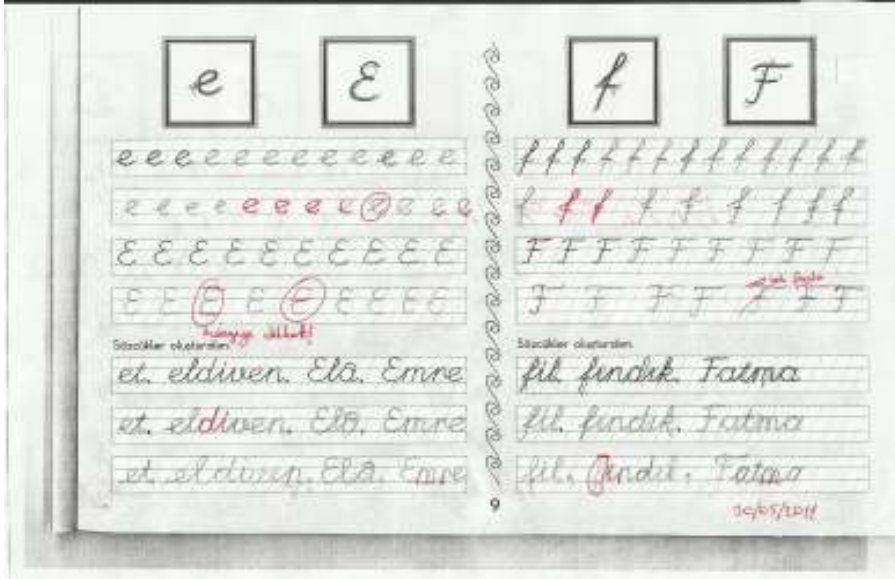 e E
e e e e e e e e e e e e
e e e e e e e e e e e e
E E E E E E E E E E
E E E E E E E E E
dikkat!
Sözcükler oluşturalım.
et. eldiven. Ela. Emre
et. eldiven. Ela. Emre
et. eldiven. Ela. Emre
f F
f f f f f f f f f f f f f
f f f f f f f f f
F F F F F F F F F
F F F F F F F
çok fazla
Sözcükler oluşturalım.
fil. fındık. Fatma
fil. fındık. Fatma
fil. fındık. Fatma
9
30/05/2011